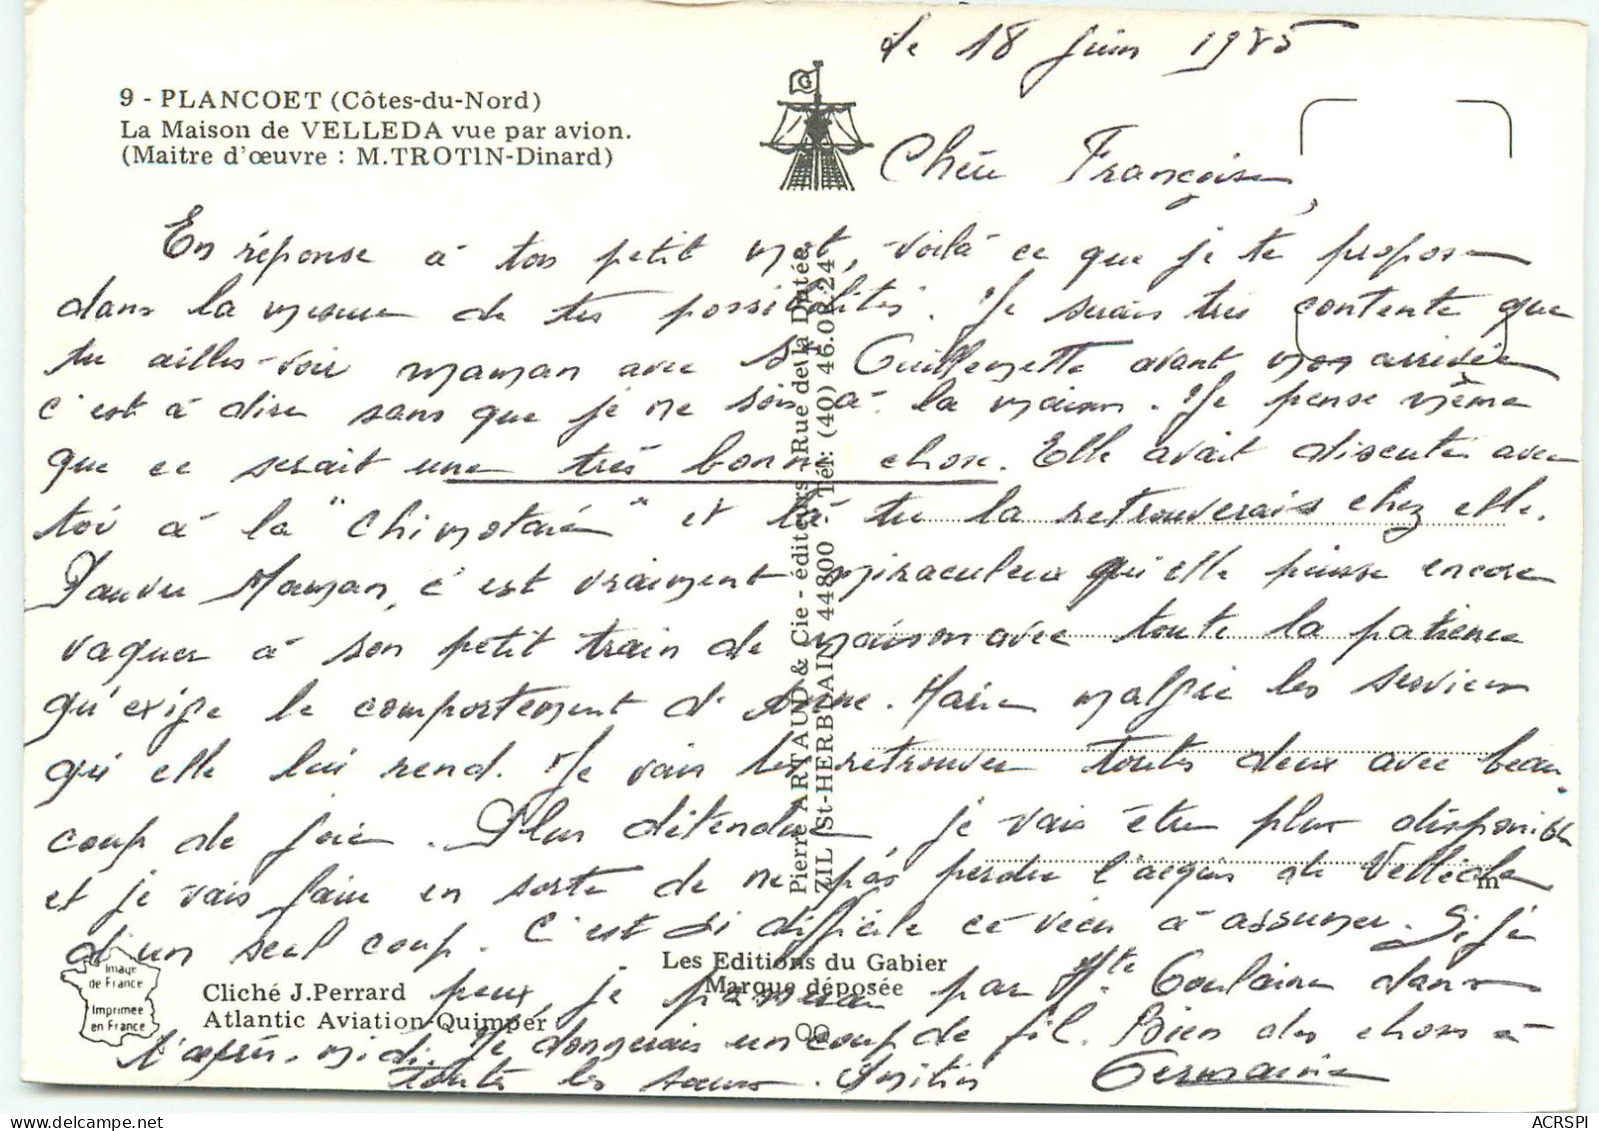 le 18 juin 1985
9 - PLANCOET (Côtes-du-Nord)
La Maison de VELLEDA vue par avion.
(Maitre d'œuvre : M.TROTIN-Dinard)
G
Chère Françoise,
En réponse à ton petit mot, voilà ce que je te propose
dans la mesure de tes possibilités. Je serais très contente que
tu ailles voir maman avec Sr Guillemette avant mon arrivée
c'est à dire sans que je ne sois à la maison. Je pense même
que ce serait une très bonne chose. Elle avait discuté avec
toi à la " " et là tu la retrouverais chez elle.
Pauvre Maman, c'est vraiment miraculeux qu'elle puisse encore
vaquer à son petit train de maison avec toute la patience
qu'exige le comportement de Anne. Marie malgré les services
qu'elle lui rend. Je vais les retrouver toutes deux avec beau-
coup de joie. Plus détendue je vais être plus disponible
et je vais faire en sorte de ne pas perdre l'acquis de Velléda
d'un seul coup. C'est si difficile ce vécu à assumer. Si je
peux, je passerai par Hte Goulaine dans
l'après-midi. Je donnerais un coup de fil. Bien des choses à
toutes les sœurs. Amitiés Germaine
Pierre ARTAUD & Cie - éditeurs - Rue de la Dutée
ZIL St-HERBLAIN 44800 - Tél: (40) 46.02.24
m
Image
de France
Imprimée
en France
Cliché J.Perrard
Atlantic Aviation-Quimper
Les Editions du Gabier
Marque déposée
ACRSPI